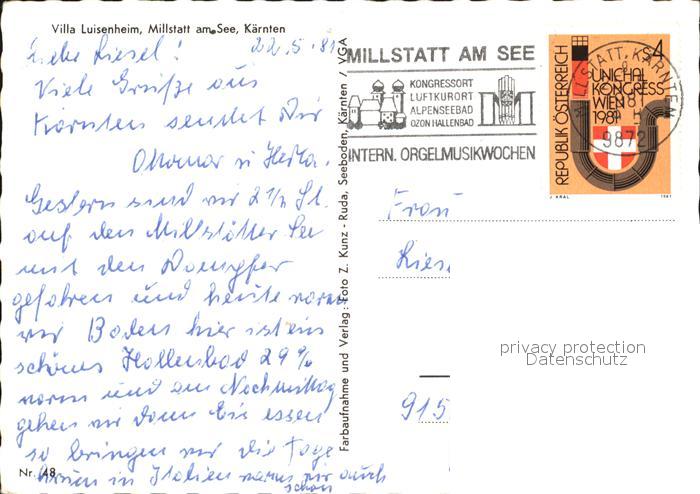 Villa Luisenheim, Millstatt am See, Kärnten
Liebe Liesel! 22.5.81
Viele Grüße aus
Kärnten sendet Dir
Ottomar u Herta.
Gestern sind wir 2½ St.
auf den Millstätter See
mit den Dampfer
gefahren und heute waren
wir Baden hier ist ein
schönes Hallenbad 29 %
warm und am Nachmittag
gehen wir dann Eis essen
so bringen wir die Tage
herum in Italien waren wir auch
schon
Nr. 48
Farbaufnahme und Verlag: Foto Z. Kunz - Ruda, Seeboden, Kärnten / VGA
MILLSTATT AM SEE
KONGRESSORT
LUFTKURORT
ALPENSEEBAD
OZON HALLENBAD
INTERN. ORGELMUSIKWOCHEN
MILLSTATT, KÄRNTEN
9872
REPUBLIK ÖSTERREICH
S4
UNICHAL
KONGRESS
WIEN
1981
J. KRAL 1981
Frau
Liese
915
privacy protection
Datenschutz